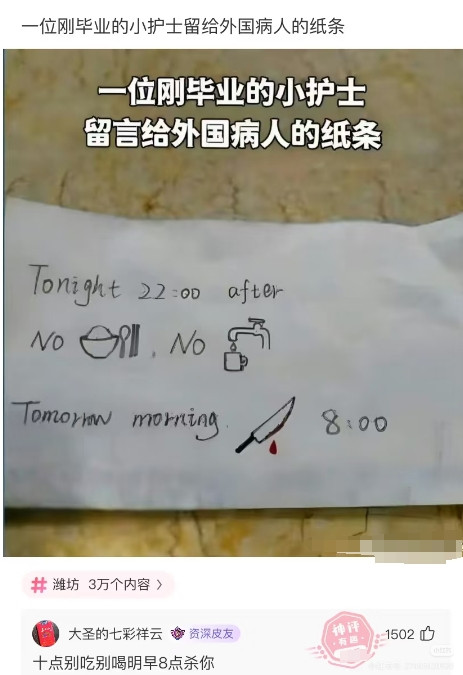 一位刚毕业的小护士留给外国病人的纸条
一位刚毕业的小护士
留言给外国病人的纸条
Tonight 22:00 after
NO , NO
Tomorrow morning. 8:00
# 潍坊 3万个内容 >
大圣的七彩祥云 资深皮友 神评有趣 1502
十点别吃别喝明早8点杀你